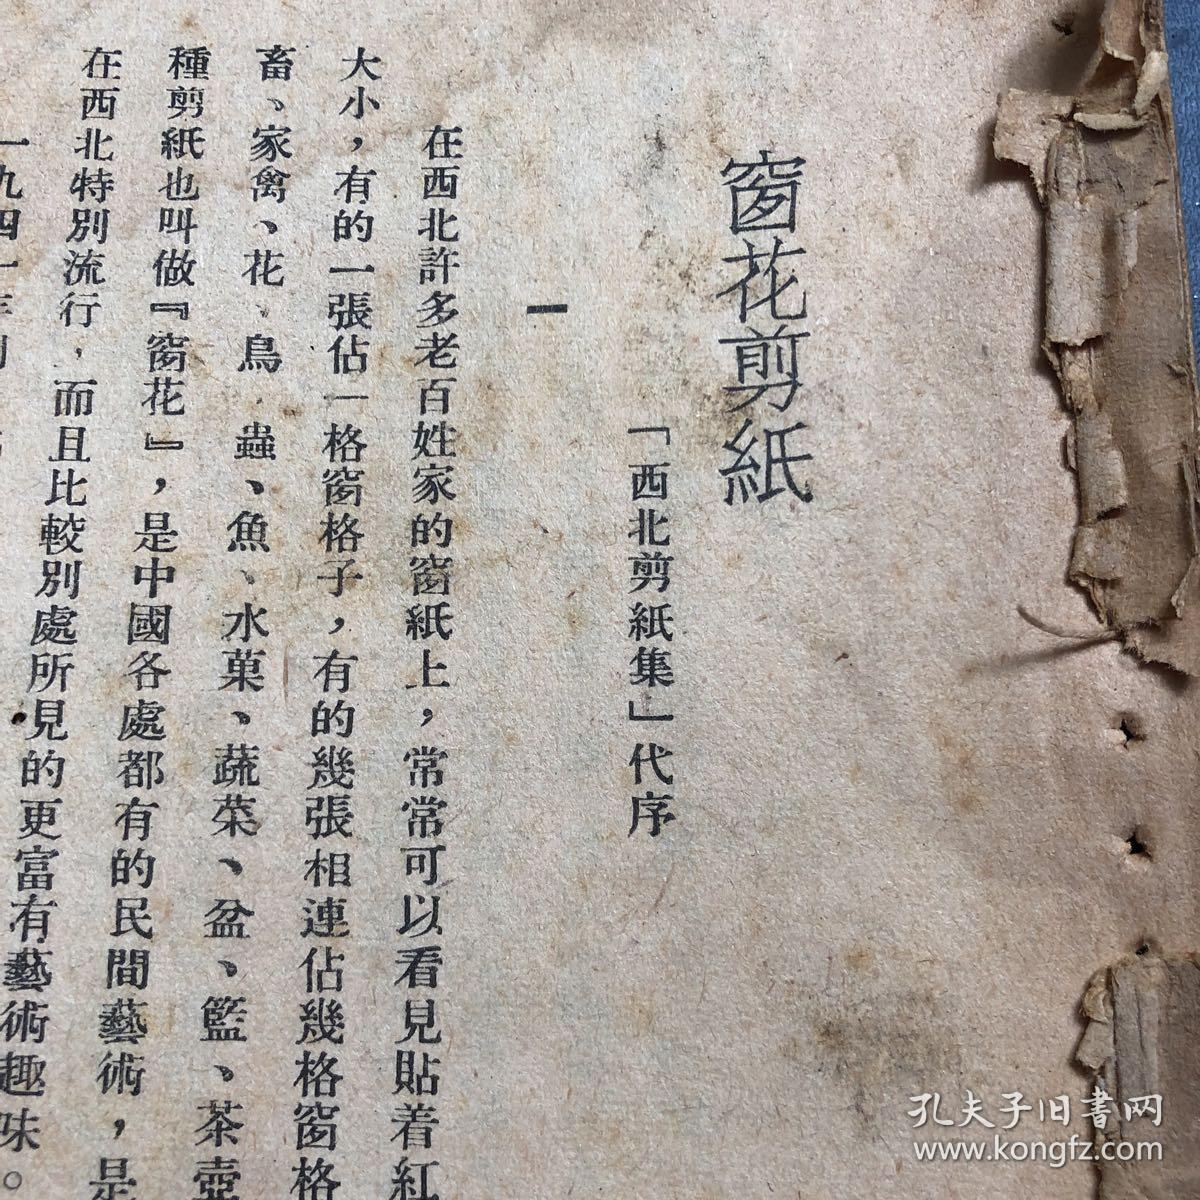 窗花剪紙
「西北剪紙集」代序
一
在西北許多老百姓家的窗紙上，常常可以看見貼着紅
大小，有的一張佔一格窗格子，有的幾張相連佔幾格窗格
畜、家禽、花、鳥、蟲、魚、水菓、蔬菜、盆、籃、茶壺
種剪紙也叫做『窗花』，是中國各處都有的民間藝術，是
在西北特別流行，而且比較別處所見的更富有藝術趣味。
一九四一年
孔夫子旧書网
www.kongfz.com